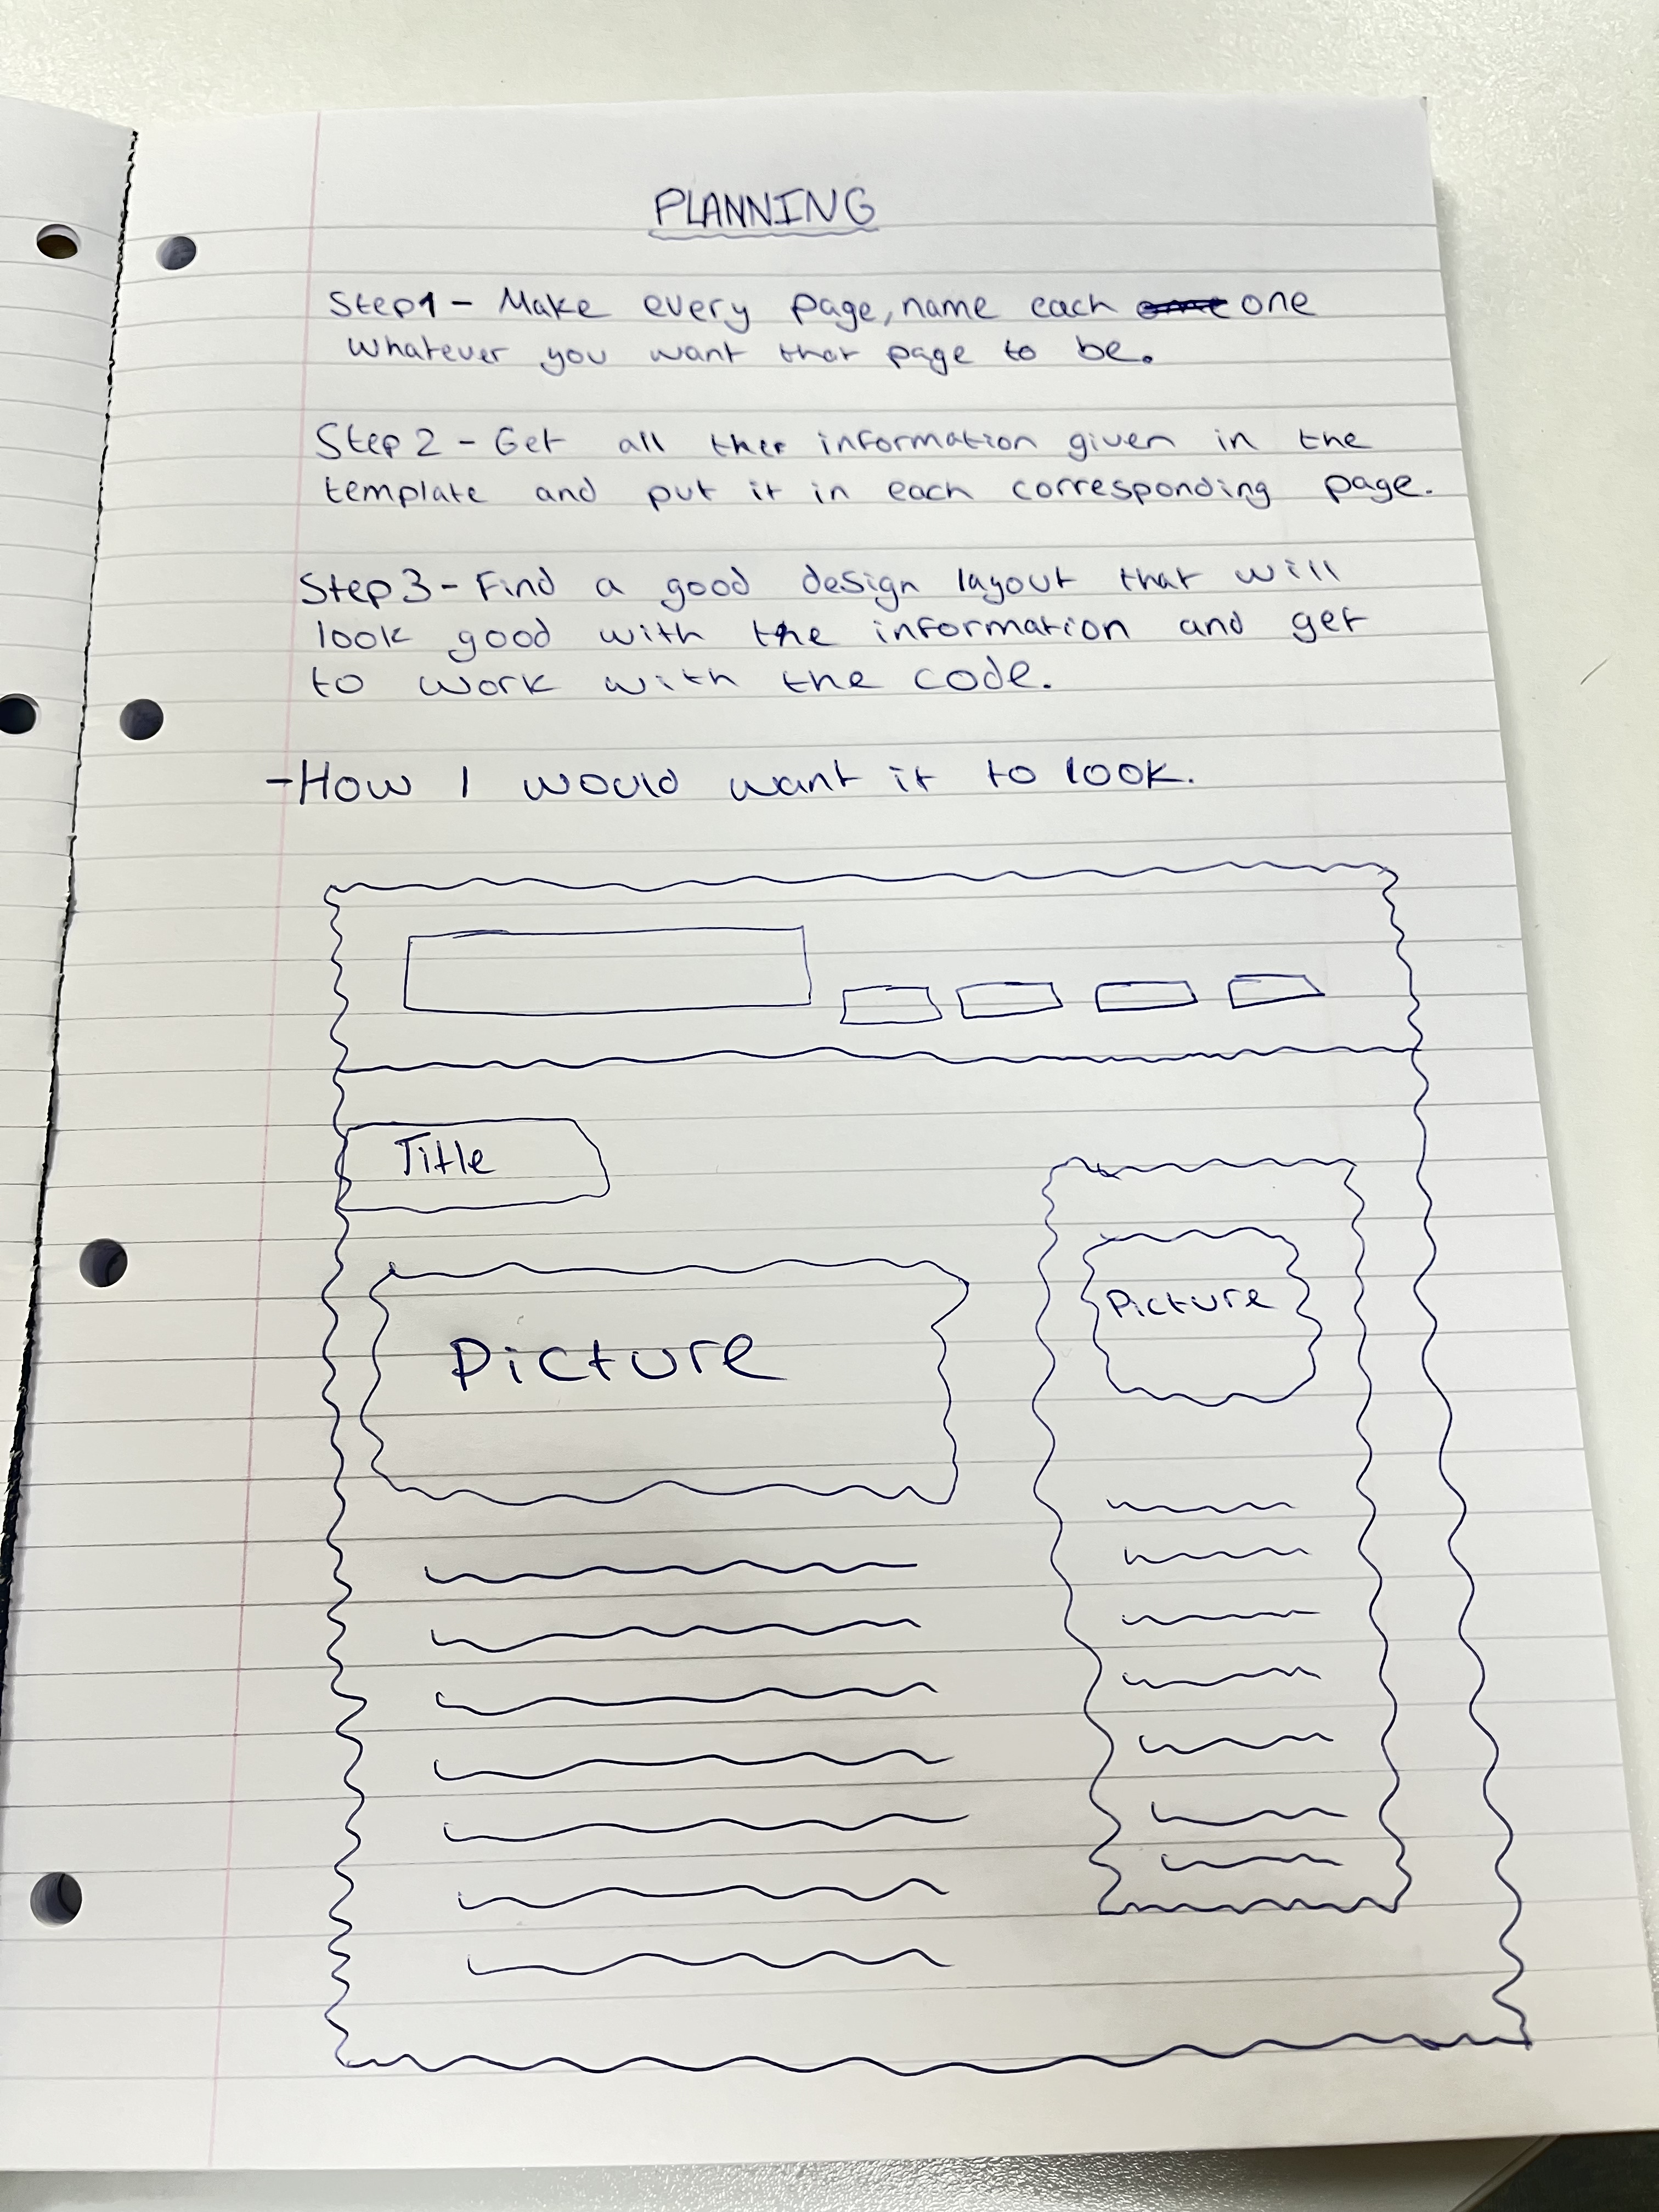 PLANNING
Step1 - Make every page, name each one
whatever you want that page to be.
Step 2 - Get all the information given in the
template and put it in each corresponding page.
Step 3 - Find a good design layout that will
look good with the information and get
to work with the code.
- How I would want it to look.
Title
Picture
Picture